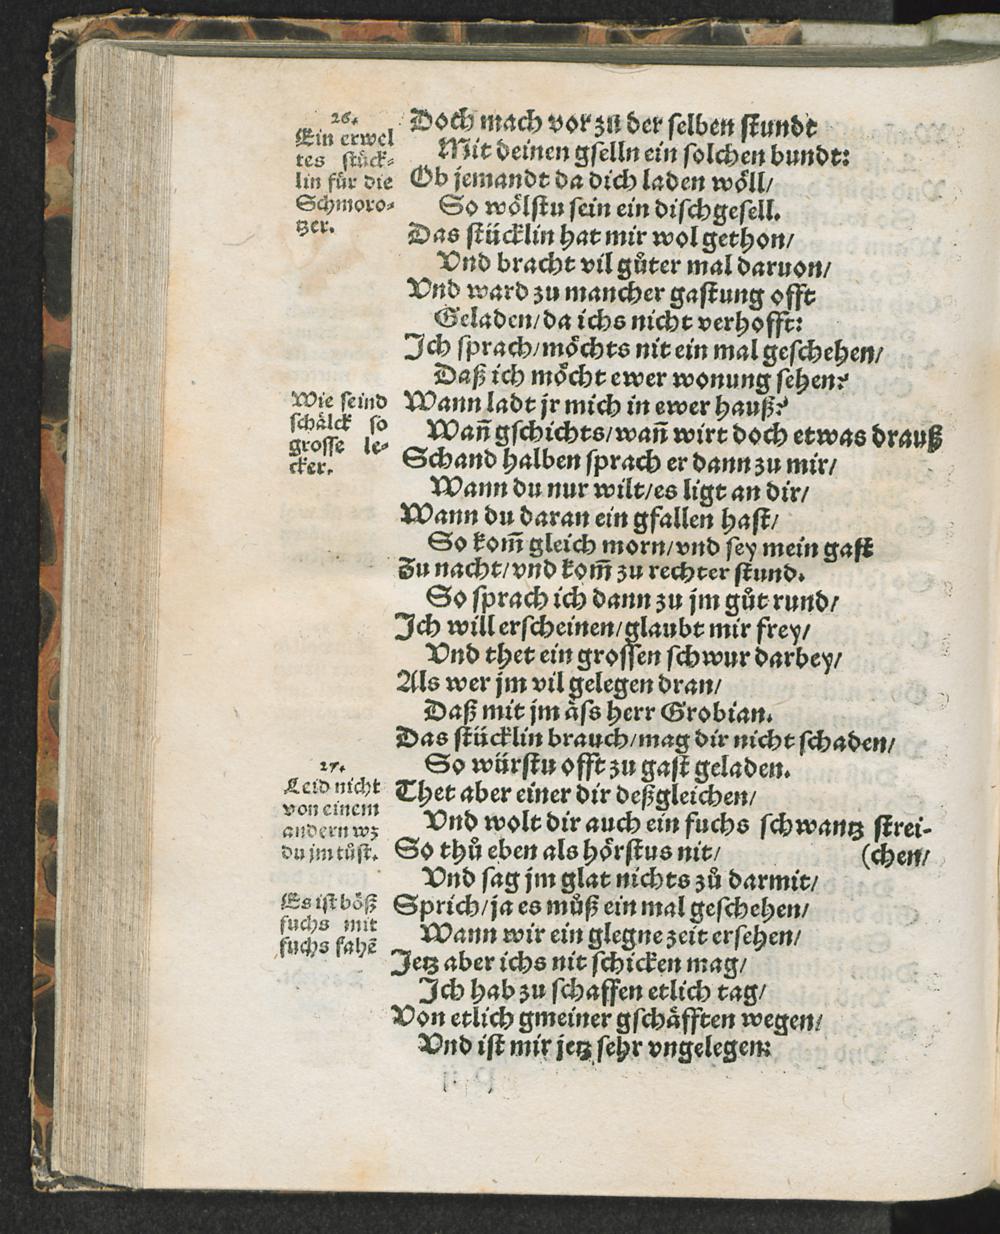 26.
Ein erwel
tes stück-
lin für die
Schmoro-
tzer.
Doch mach vor zu der selben stundt
Mit deinen gselln ein solchen bundt:
Ob jemandt da dich laden wöll/
So wölstu sein ein dischgesell.
Das stücklin hat mir wol gethon/
Vnd bracht vil gůter mal daruon/
Vnd ward zu mancher gastung offt
Geladen/da ichs nicht verhofft:
Ich sprach/möchts nit ein mal geschehen/
Daß ich möcht ewer wonung sehen?
Wie seind
schälck so
grosse le-
cker.
Wann ladt jr mich in ewer hauß?
Wañ gschichts/wañ wirt doch etwas drauß
Schand halben sprach er dann zu mir/
Wann du nur wilt/es ligt an dir/
Wann du daran ein gfallen hast/
So kom̃ gleich morn/vnd sey mein gast
Zu nacht/vnd kom̃ zu rechter stund.
So sprach ich dann zu jm gůt rund/
Ich will erscheinen/glaubt mir frey/
Vnd thet ein grossen schwur darbey/
Als wer jm vil gelegen dran/
Daß mit jm äss herr Grobian.
Das stücklin brauch/mag dir nicht schaden/
So würstu offt zu gast geladen.
27.
Leid nicht
von einem
andern wz
du jm tůst.
Thet aber einer dir deßgleichen/
Vnd wolt dir auch ein fuchs schwantz strei-
So thů eben als hörstus nit/ (chen/
Vnd sag jm glat nichts zů darmit/
Es ist böß
fuchs mit
fuchs fahẽ
Sprich/ja es můß ein mal geschehen/
Wann wir ein glegne zeit ersehen/
Jetz aber ichs nit schicken mag/
Ich hab zu schaffen etlich tag/
Von etlich gmeiner gschäfften wegen/
Vnd ist mir jetz sehr vngelegen: